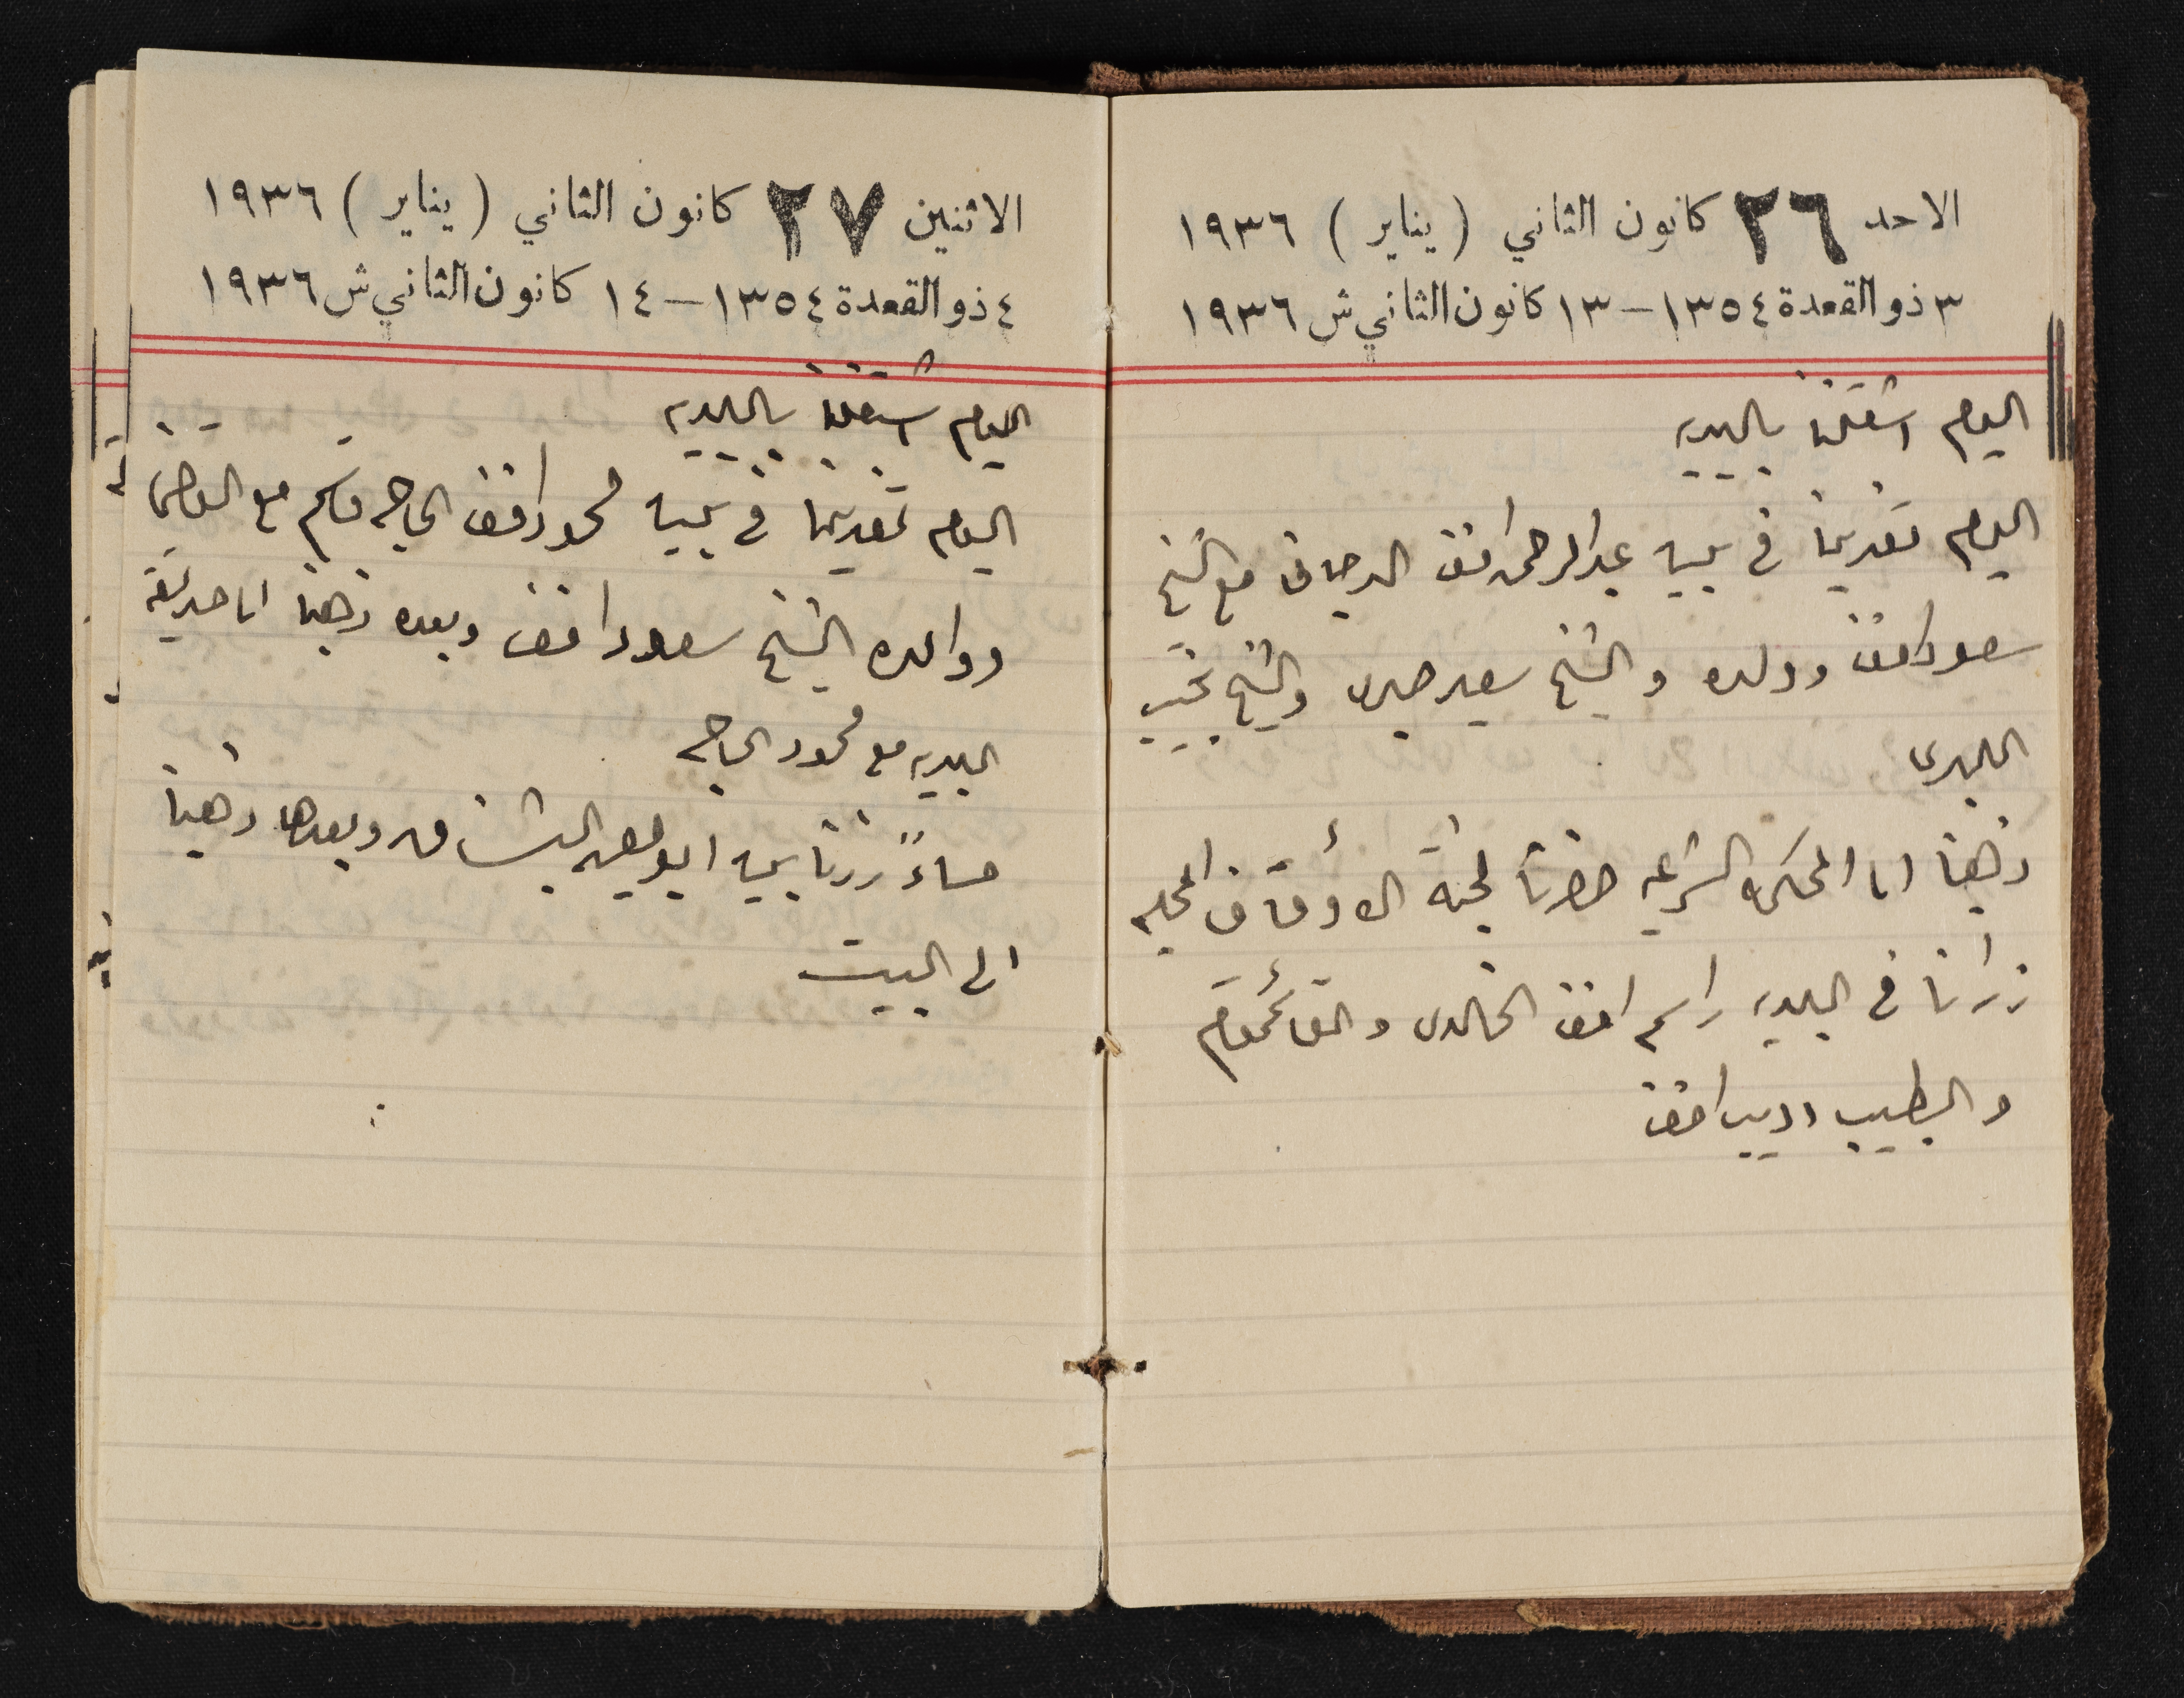 الاحد ٢٦ كانون الثاني ( يناير ) ١٩٣٦
٣ ذو القعدة ١٣٥٤ – ١٣ كانون الثاني ش ١٩٣٦
اليوم اشتغلنا بالبلديه
اليوم تغدينا في بيت عبد الرحمن افندي الدجاني مع الشيخ
سعود افندي وولده والشيخ سعيد صبري والشيخ نجيب
ذهبنا الى المحكمه الشرعيه حضرنا لجنة الأوقاف المحليه
زارنا في البلديه راسم افندي الخالدي والقائمقام
والطبيب اديب افندي
الاثنين ٢٧ كانون الثاني ( يناير ) ١٩٣٦
٤ ذو القعدة ١٣٥٤ – ١٤ كانون الثاني ش ١٩٣٦
اليوم اشتغلنا بالبلديه
اليوم تغدينا في بيت محمود افندي الحاج قاسم مع القاضي
ووالده الشيخ سعود افندي وبعده ذهبنا الى حديقة
البلديه مع محمود الحاج
مساءً زرنا بيت ابو البشناق وبعدها ذهبنا
الى البيت